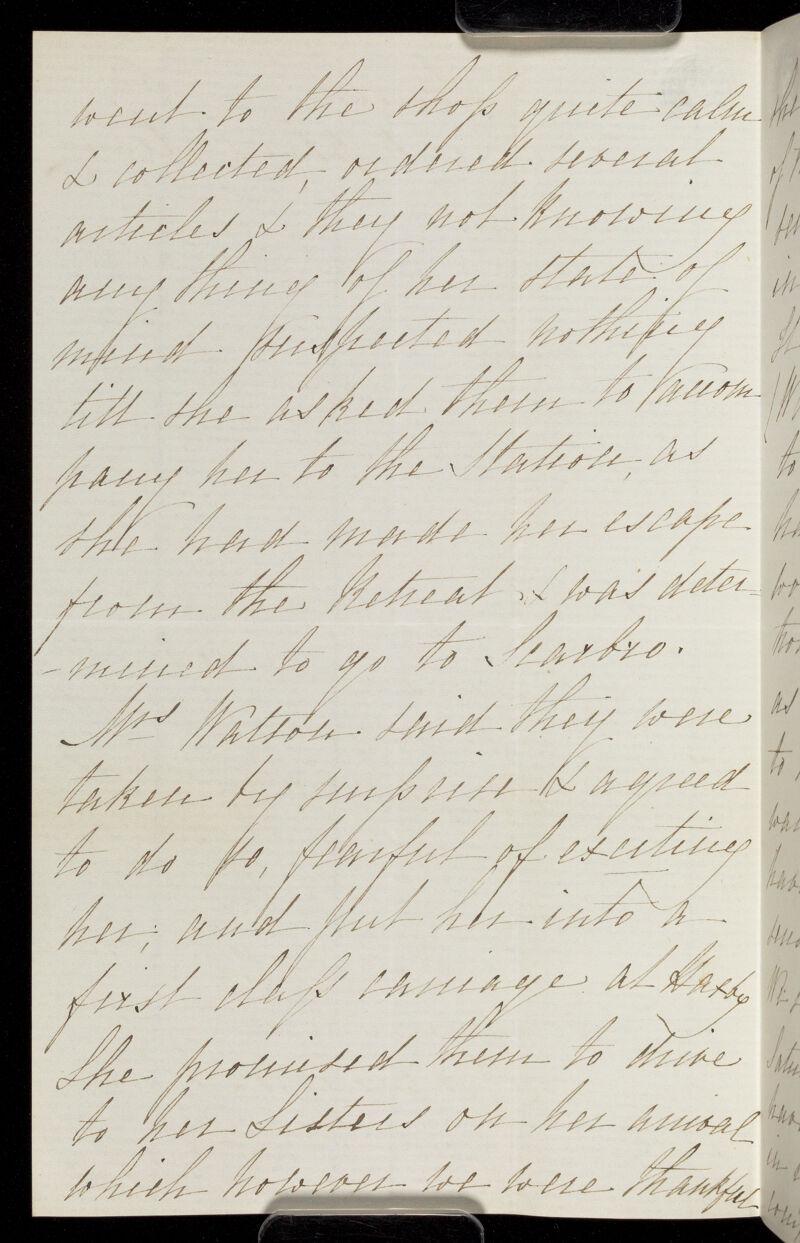 went to the shop quite calm
& collected, ordered several
articles & they not knowing
any thing of her state of
mind suspected nothing
till she asked them to accom
pany her to the Station, as
she had made her escape
from the Retreat & was deter=
-mined to go to Scarbro.
Mrs Watson said they were
taken by surprise & agreed
to do so, fearful of exciting
her; and put her into a
first class carriage at Haxby
She promised them to drive
to her Sisters on her arrival
which however we were thankful